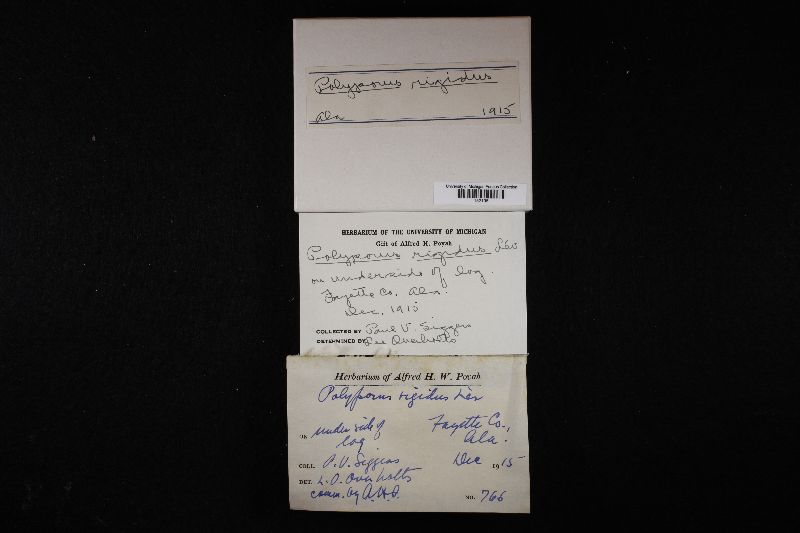 Polyporus rigidus
Ala 1915
University of Michigan Fungus Collection
HERBARIUM OF THE UNIVERSITY OF MICHIGAN
Gift of Alfred H. Povah
Polyporus rigidus Lév
on underside of log.
Fayette Co. Ala.
Dec. 1915
COLLECTED BY Paul V. Siggers
DETERMINED BY Lee Overholts
Herbarium of Alfred H. W. Povah
Polyporus rigidus Lév
ON under side of Fayette Co.,
log Ala.
COLL. P. V. Siggers Dec 1915
DET. L. O. Overholts
comm. by NO. 766